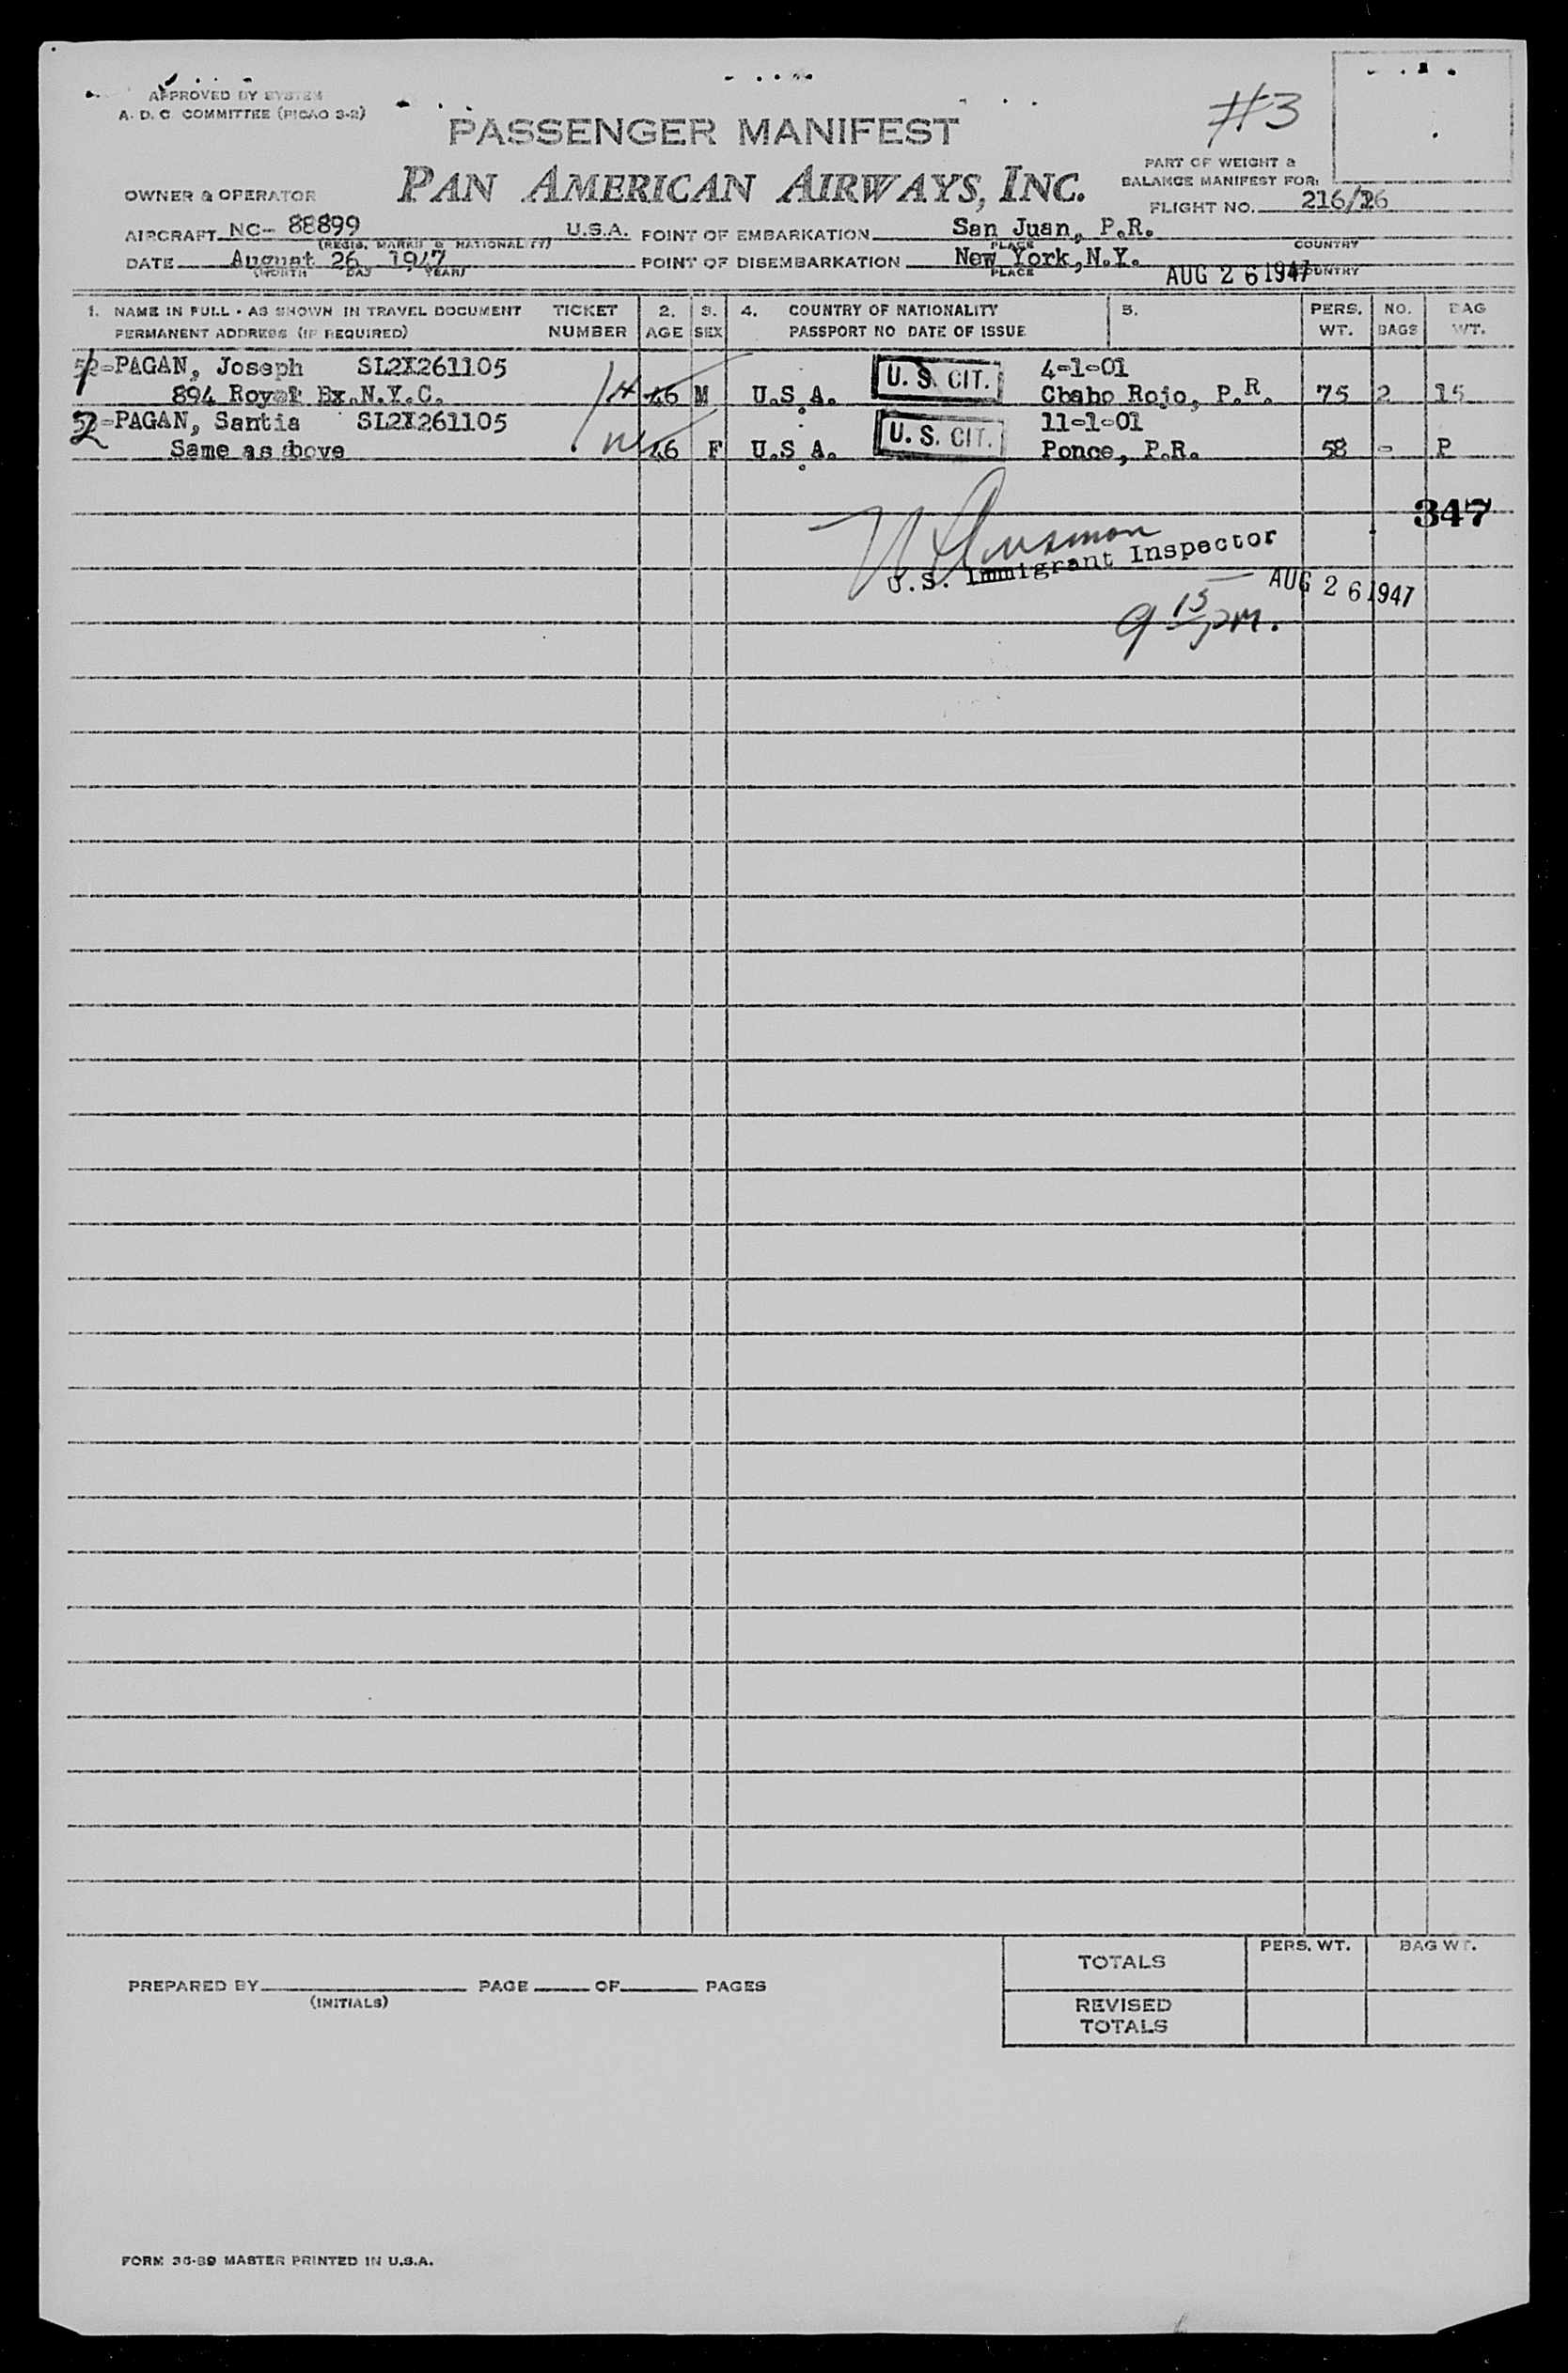 APPROVED BY SYSTEM
A. D. C COMMITTEE (PICAO S-2)
#3
PASSENGER MANIFEST
PAN AMERICAN AIRWAYS, INC.
PART OF WEIGHT &
BALANCE MANIFEST FOR:
OWNER & OPERATOR
FLIGHT NO. 216/26
AIRCRAFT NC- 88899 U.S.A. POINT OF EMBARKATION San Juan, P.R.
(REGIS. MARKS & NATIONALITY) PLACE COUNTRY
DATE August 26 1947 POINT OF DISEMBARKATION New York, N.Y. AUG 26 1947
(MONTH DAY YEAR) PLACE COUNTRY
1. NAME IN FULL - AS SHOWN IN TRAVEL DOCUMENT TICKET 2. 3. 4. COUNTRY OF NATIONALITY 5. PERS. NO. BAG
PERMANENT ADDRESS (IF REQUIRED) NUMBER AGE SEX PASSPORT NO DATE OF ISSUE WT. BAGS WT.
1 PAGAN, Joseph SL2X261105 U.S. CIT. 4-1-01
894 Bx.N.Y.C. 46 M U.S.A. Cbaho Rojo, P.R. 75 2 15
2 PAGAN, Santia SL2X261105 U.S. CIT. 11-1-01
Same as above 46 F U.S.A. Ponce, P.R. 58 - P
347
U.S. Immigrant Inspector
AUG 26 1947
9 15 pm.
TOTALS PERS. WT. BAG WT.
PREPARED BY PAGE OF PAGES
(INITIALS)
REVISED
TOTALS
FORM 36-89 MASTER PRINTED IN U.S.A.